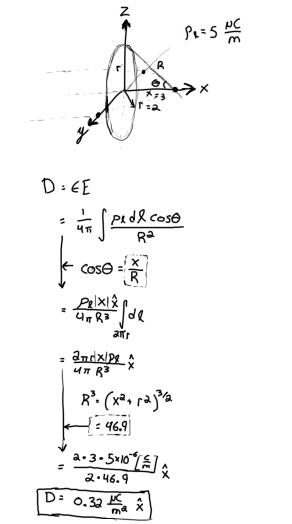 Z
ρℓ = 5 μC/m
r
R
θ
x
x=3
r=2
y
D = ϵE
= 1/4π ∫ ρℓ dℓ cosθ / R²
cosθ = x/R
= ρℓ|x|x̂ / 4πR³ ∫ dℓ
2πr
= 2πr|x|ρℓ / 4πR³ x̂
R³ = (x² + r²)^3/2
= 46.9
= 2·3·5×10⁻⁶ [C/m] / 2·46.9 x̂
D = 0.32 μC/m² x̂